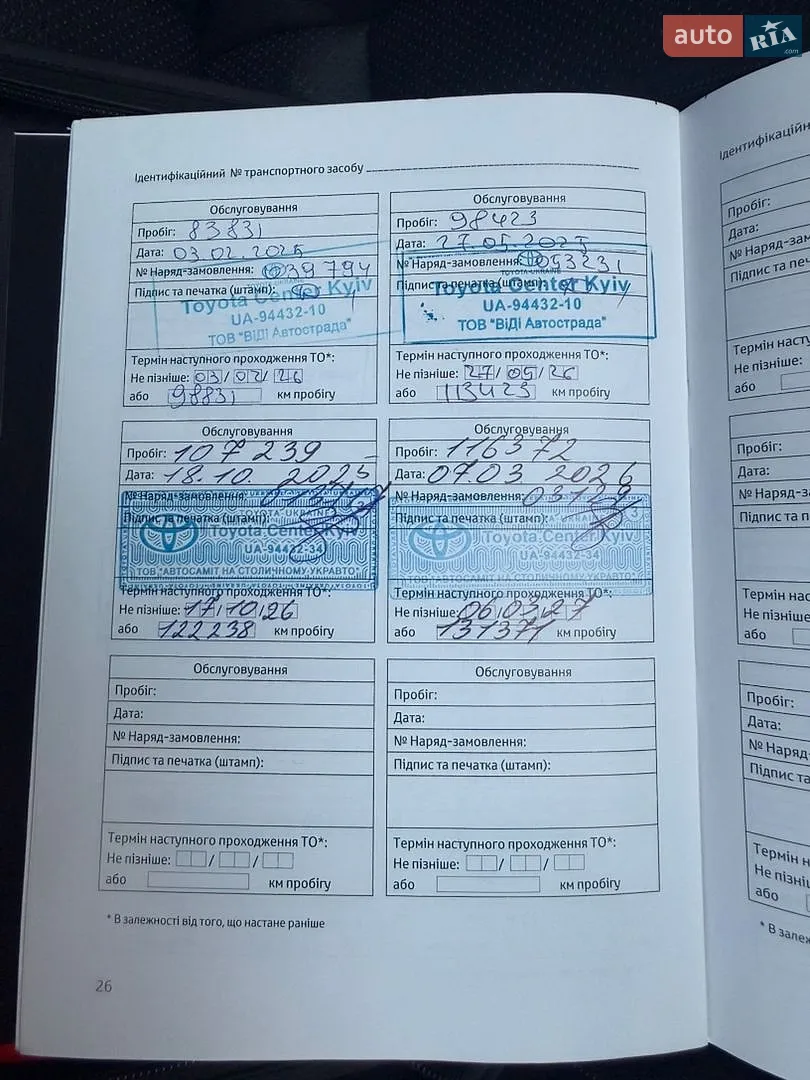 auto RIA.com
Ідентифікаційний № транспортного засобу
Обслуговування
Пробіг: 83831
Дата: 03.02.2025
№ Наряд-замовлення: 039794
Підпис та печатка (штамп):
Toyota Center Kyiv
UA-94432-10
ТОВ "ВіДі Автострада"
Термін наступного проходження ТО*:
Не пізніше: 03/02/26
або 98831 км пробігу
Обслуговування
Пробіг: 98423
Дата: 27.05.2025
№ Наряд-замовлення: 053231
Підпис та печатка (штамп):
TOYOTA-UKRAINE
Toyota Center Kyiv
UA-94432-10
ТОВ "ВіДі Автострада"
Термін наступного проходження ТО*:
Не пізніше: 27/05/26
або 113423 км пробігу
Обслуговування
Пробіг: 107 239
Дата: 18.10. 2025
№ Наряд-замовлення:
Підпис та печатка (штамп):
TOYOTA-UKRAINE
Toyota Center Kyiv
UA-94432-34
ТОВ "АВТОСАМІТ НА СТОЛИЧНОМУ УКРАВТО"
Термін наступного проходження ТО*:
Не пізніше: 17/10/26
або 122238 км пробігу
Обслуговування
Пробіг: 116372
Дата: 07.03. 2026
№ Наряд-замовлення:
Підпис та печатка (штамп):
TOYOTA-UKRAINE
Toyota Center Kyiv
UA-94432-34
ТОВ "АВТОСАМІТ НА СТОЛИЧНОМУ УКРАВТО"
Термін наступного проходження ТО*:
Не пізніше: 06/03/27
або 131371 км пробігу
Обслуговування
Пробіг:
Дата:
№ Наряд-замовлення:
Підпис та печатка (штамп):
Термін наступного проходження ТО*:
Не пізніше: / /
або км пробігу
Обслуговування
Пробіг:
Дата:
№ Наряд-замовлення:
Підпис та печатка (штамп):
Термін наступного проходження ТО*:
Не пізніше: / /
або км пробігу
* В залежності від того, що настане раніше
26
Пробіг:
Дата:
№ Наряд-замо
Підпис та п
Термін наст
Не пізніше:
або
Пробіг:
Дата:
№ Наряд-за
Підпис та п
Термін нас
Не пізніше
або
Пробіг:
Дата:
№ Наряд
Підпис та
Термін н
Не пізні
або
* В зале